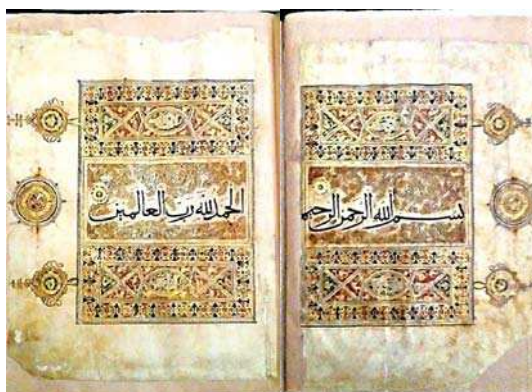 بسم الله الرحمن الرحيم
الحمد لله رب العالمين